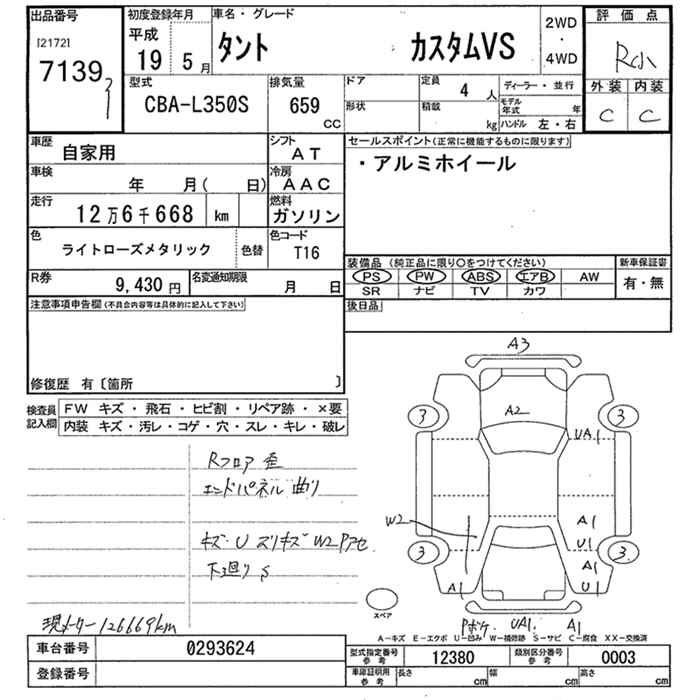 出品番号
[2172]
7139
初度登録年月
平成
19 5月
車名・グレード
タント カスタムVS
2WD
・
4WD
評価点
R小
外装 内装
C C
型式
CBA-L350S
排気量
659
CC
ドア
形状
定員
4 人
積載
kg
ディーラー・並行
モデル年式 年
ハンドル 左・右
車歴
自家用
シフト
AT
車検
年 月( 日)
冷房
AAC
走行
12万6千668 km
燃料
ガソリン
色
ライトローズメタリック
色替
色コード
T16
R券
9,430 円
名変通知期限
月 日
セールスポイント(正常に機能するものに限ります)
・アルミホイール
装備品 (純正品に限り○をつけてください)
PS PW ABS エアB AW
SR ナビ TV カワ
新車保証書
有・無
後日品
注意事項申告欄(不具合内容等は具体的に記入して下さい)
修復歴 有〔箇所 〕
検査員記入欄
FW キズ・飛石・ヒビ割・リペア跡・×要
内装 キズ・汚レ・コゲ・穴・スレ・キレ・破レ
Rフロア 歪
エンドパネル 曲り
キズ・U スリキズ W2 Pアセ
下廻り S
現メーター 126669km
A3
A2
3 3
UA1
W2
A1
U1
3 3
A1
A1 U1
スペア
Pボケ UA1 A1
A-キズ E-エクボ U-凹み W-補修跡 S-サビ C-腐食 XX-交換済
車台番号 0293624
登録番号
型式指定番号 参考 12380
類別区分番号 参考 0003
車庫証明用 参考 長さ cm 幅 cm 高さ cm